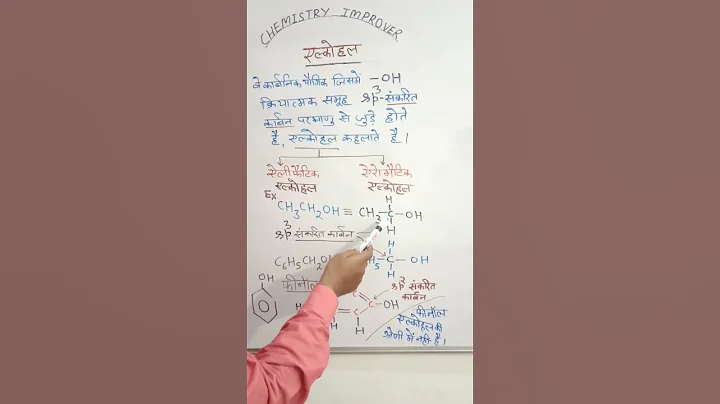 CHEMISTRY IMPROVER
एल्कोहल
वे कार्बनिक यौगिक जिसमें —OH
क्रियात्मक समूह sp³-संकरित
कार्बन परमाणु से जुड़े होते
है, एल्कोहल कहलाते है।
ऐलीफैटिक एरोमैटिक
एल्कोहल एल्कोहल
Ex H
CH₃CH₂OH ≡ CH₃—C—OH
H
sp³ संकरित कार्बन
H
C₆H₅CH₂O H₅—C—OH
OH फीनॉल sp² संकरित
कार्बन
C—OH
H H
फीनॉल
एल्कोहल की
श्रेणी में नही है।